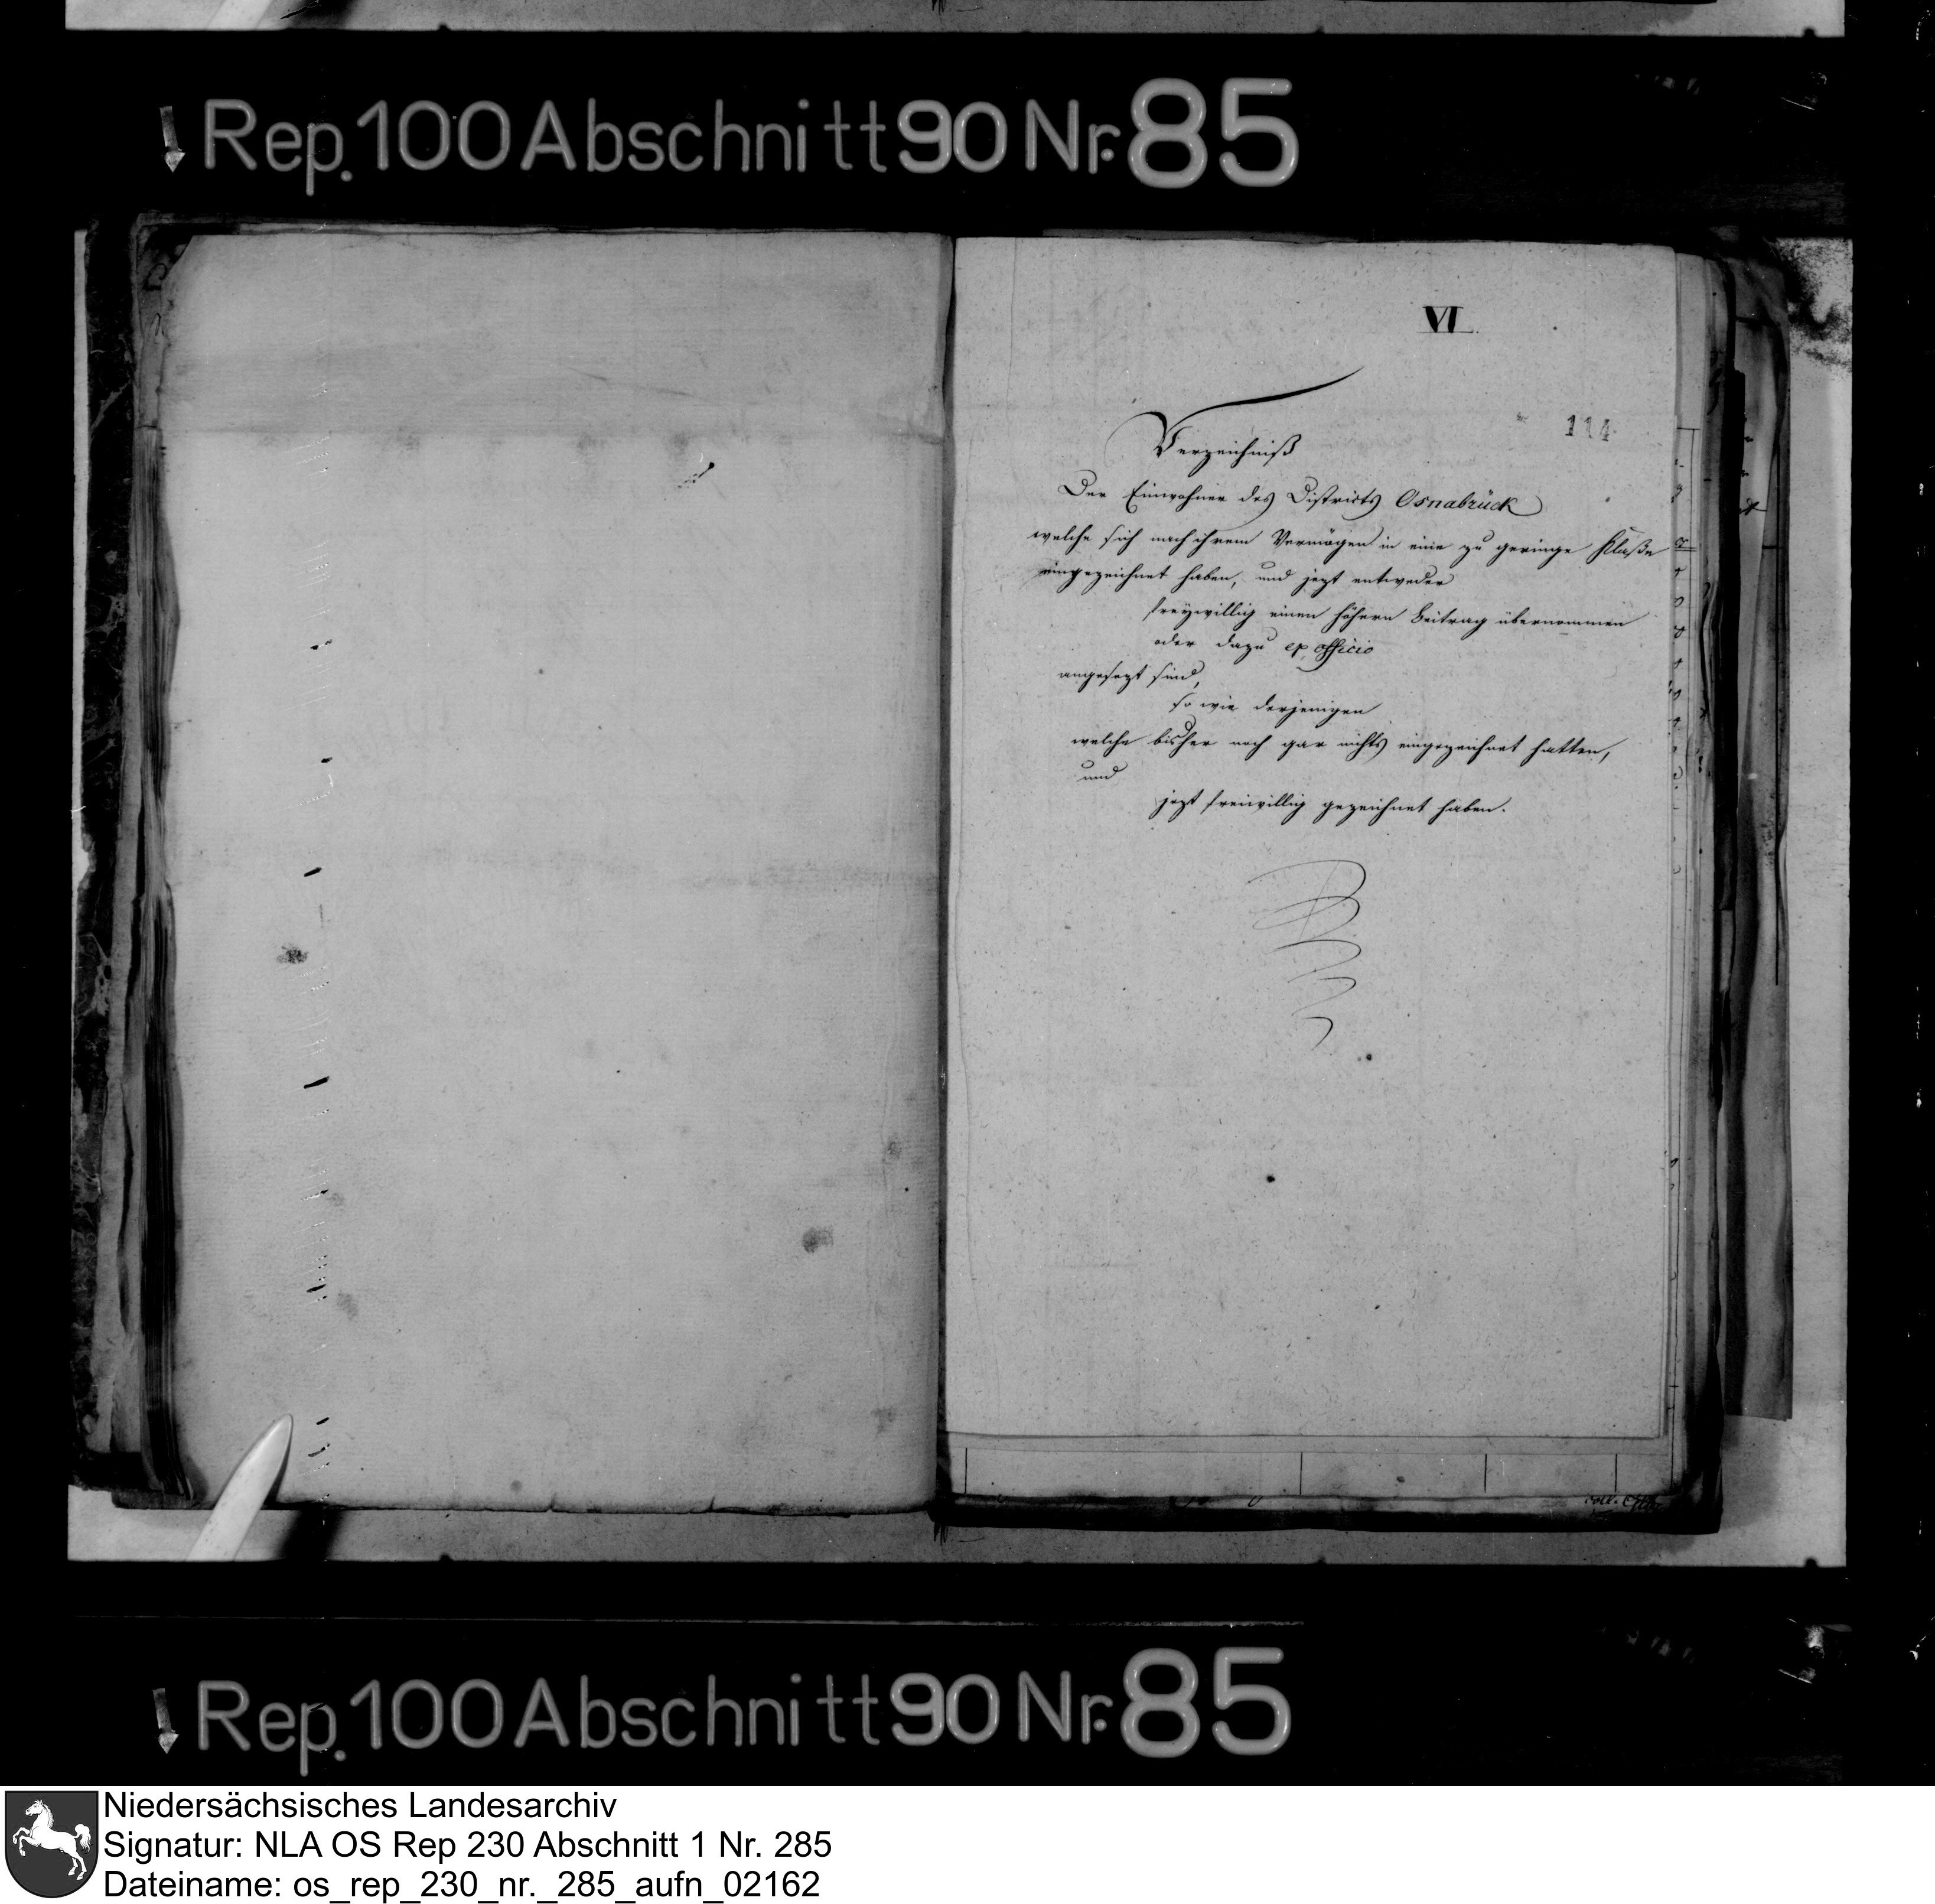 Rep. 100 Abschnitt 90 Nr. 85
VI.
114
Verzeichniß
Der Einwohner des Districts Osnabrück
welche sich nach ihrem Vermögen in eine zu geringe Klaße
eingezeichnet haben, und jezt entweder
freÿwillig einen höhern Beitrag übernommen
oder dazu ex officio
angesezt sind,
so wie derjenigen
welche bisher noch gar nichts eingezeichnet hatten,
und
jezt freiwillig gezeichnet haben.
Rep. 100 Abschnitt 90 Nr. 85
Niedersächsisches Landesarchiv
Signatur: NLA OS Rep 230 Abschnitt 1 Nr. 285
Dateiname: os_rep_230_nr._285_aufn_02162